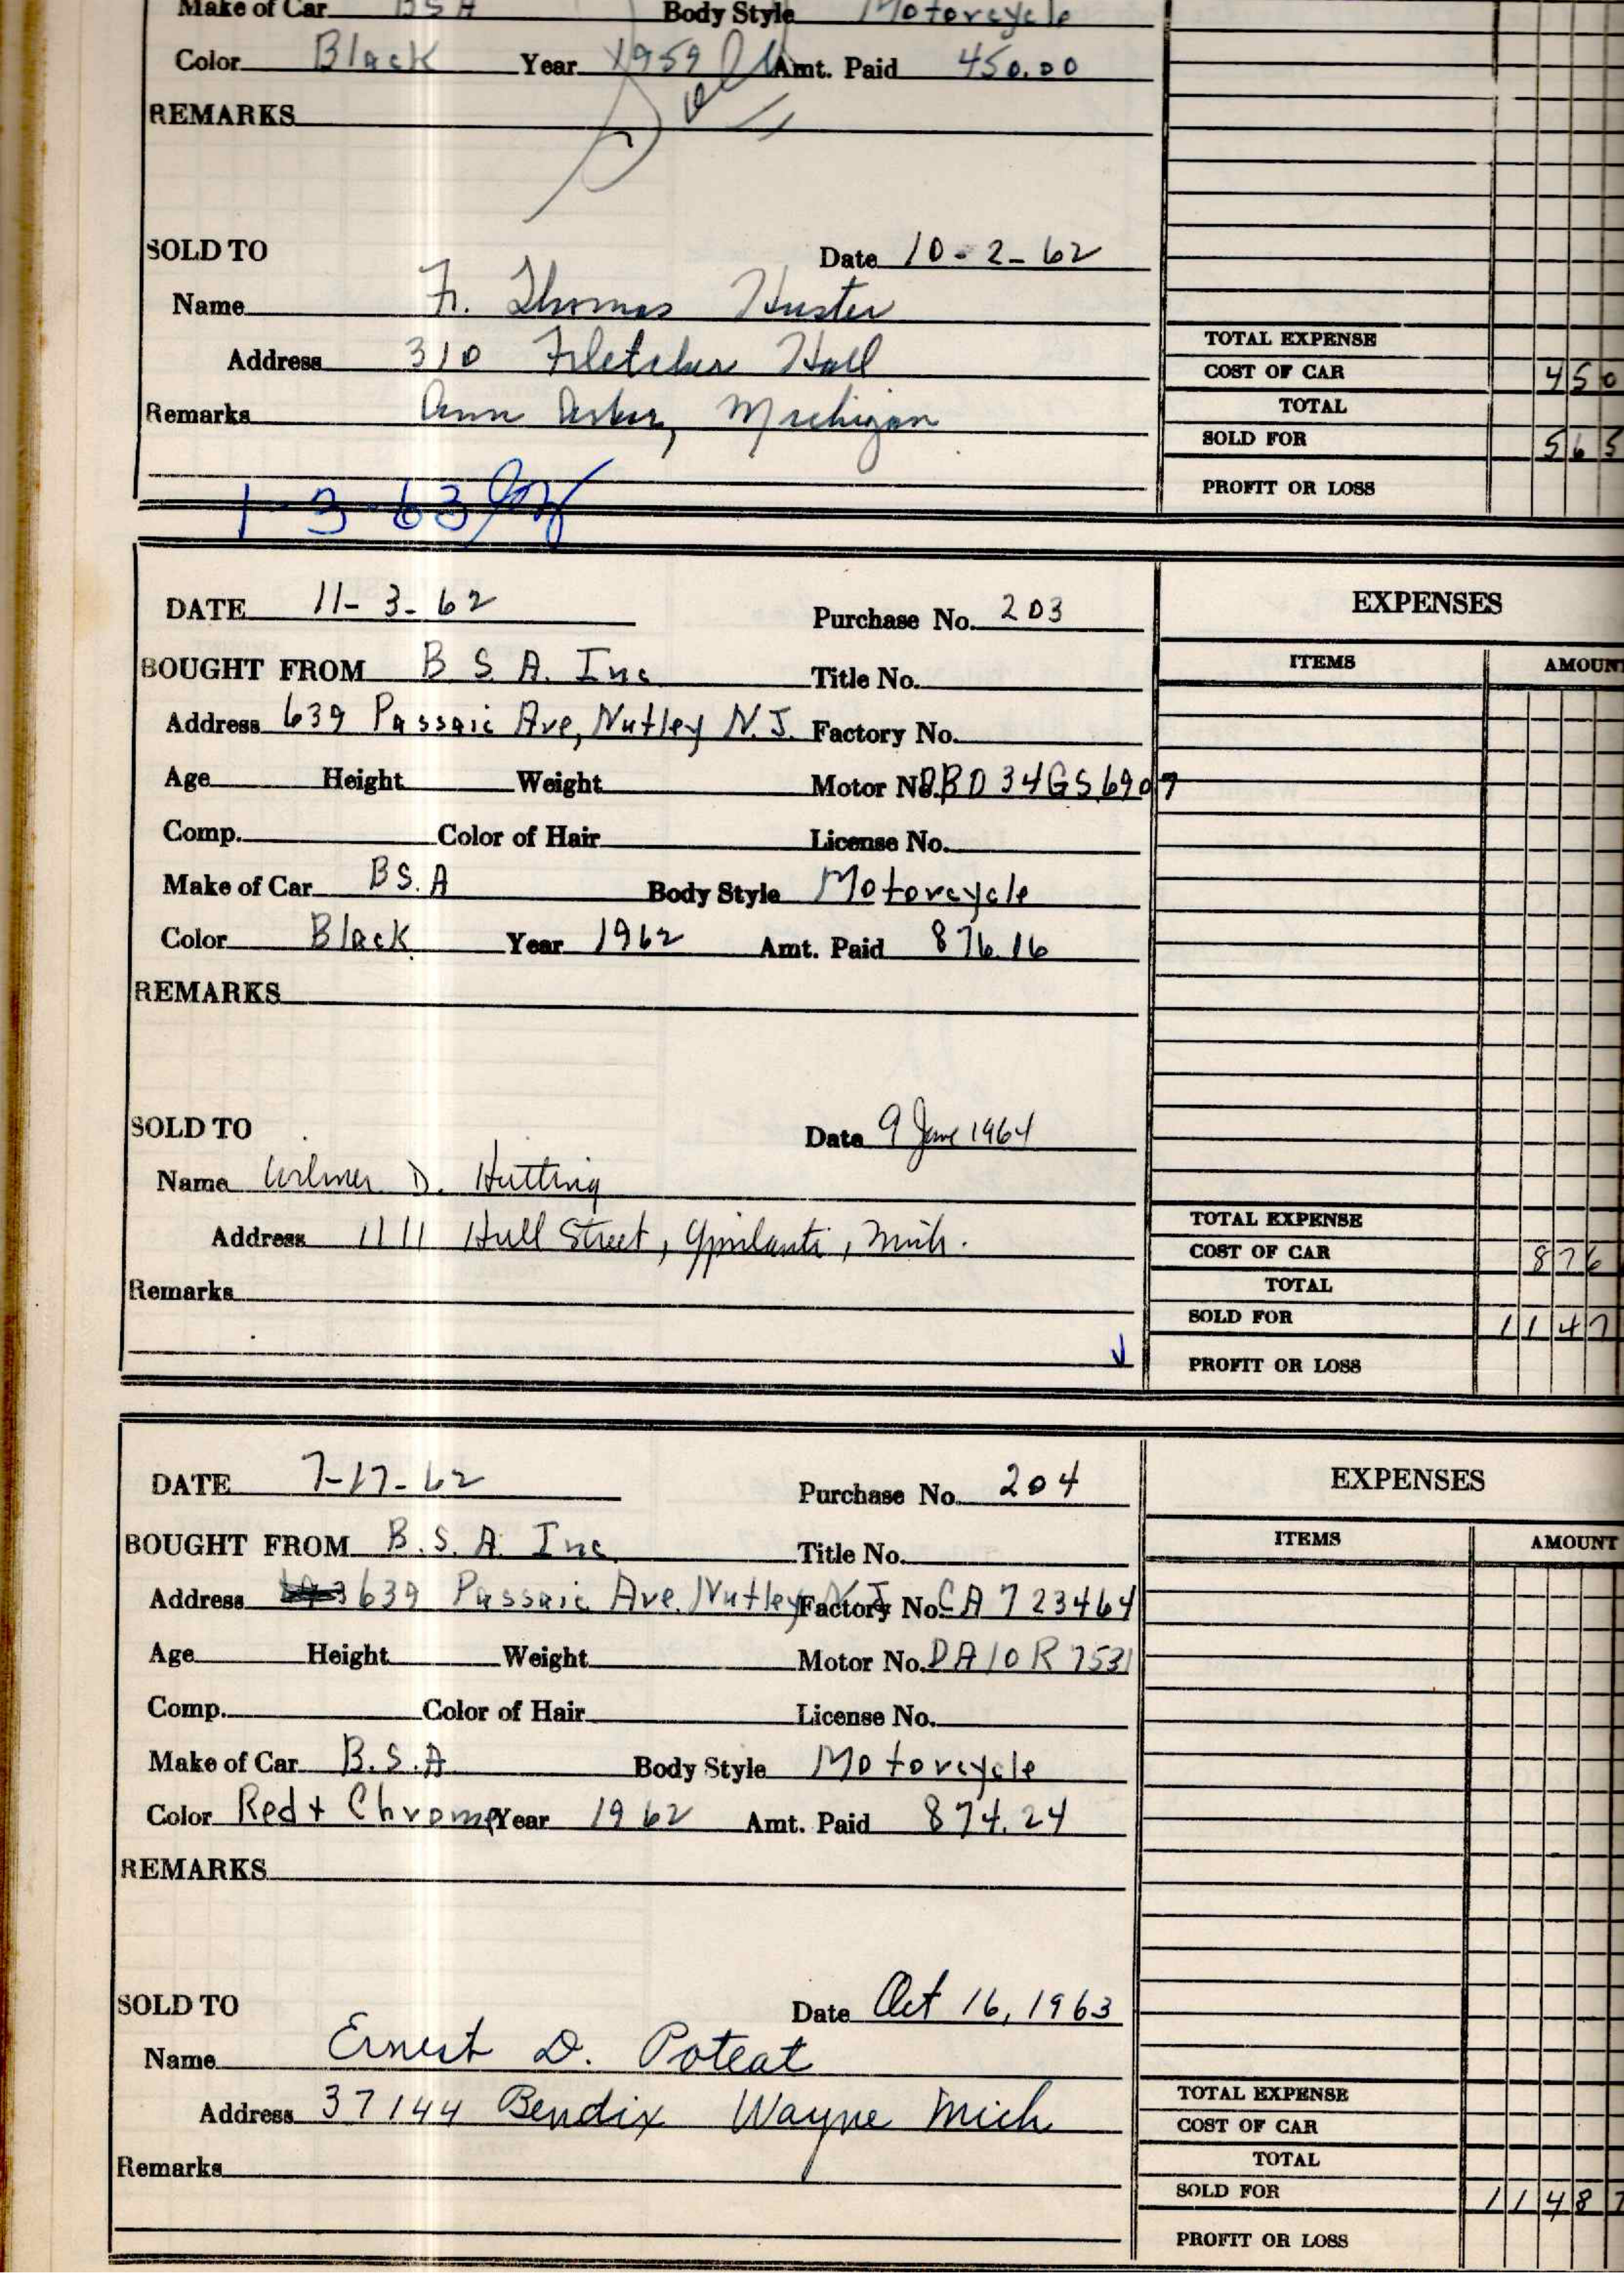 Make of Car BSA Body Style Motorcycle
Color Black Year 1959 Amt. Paid 450.00
Sold
REMARKS
SOLD TO Date 10-2-62
Name Thomas Huster
Address 310 Fletcher Hall
Remarks Ann Arbor, Michigan
TOTAL EXPENSE
COST OF CAR 450
TOTAL
SOLD FOR 565
PROFIT OR LOSS
1-3-63
DATE 11-3-62 Purchase No. 203
BOUGHT FROM B S A. Inc Title No.
Address 639 Passaic Ave, Nutley N.J. Factory No.
Age Height Weight Motor No. DBD34GS6907
Comp. Color of Hair License No.
Make of Car BS.A Body Style Motorcycle
Color Black Year 1962 Amt. Paid 876.16
REMARKS
EXPENSES
ITEMS AMOUNT
SOLD TO Date 9 June 1964
Name Wilmer D. Hutting
Address 1111 Hull Street, Ypsilanti, Mich.
Remarks
TOTAL EXPENSE
COST OF CAR 876
TOTAL
SOLD FOR 1147
PROFIT OR LOSS
DATE 7-17-62 Purchase No. 204
BOUGHT FROM B.S.A. Inc. Title No.
Address 639 Passaic Ave. Nutley N.J. Factory No. CA723464
Age Height Weight Motor No. DA10R7531
Comp. Color of Hair License No.
Make of Car B.S.A Body Style Motorcycle
Color Red + Chrome Year 1962 Amt. Paid 874.24
REMARKS
EXPENSES
ITEMS AMOUNT
SOLD TO Date Oct 16, 1963
Name Ernest D. Poteat
Address 37144 Bendix Wayne Mich
Remarks
TOTAL EXPENSE
COST OF CAR
TOTAL
SOLD FOR 1148
PROFIT OR LOSS